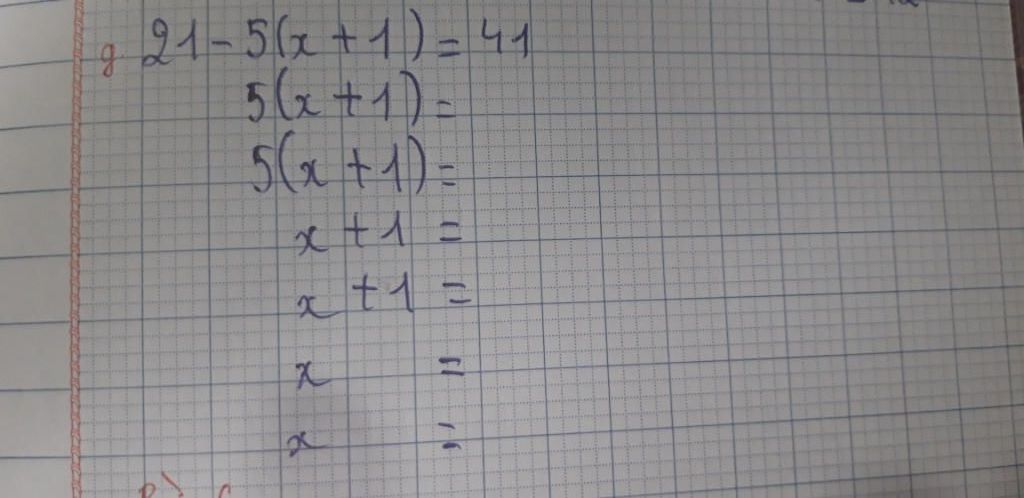 g. 21 - 5(x + 1) = 41
5(x + 1) =
5(x + 1) =
x + 1 =
x + 1 =
x =
x =